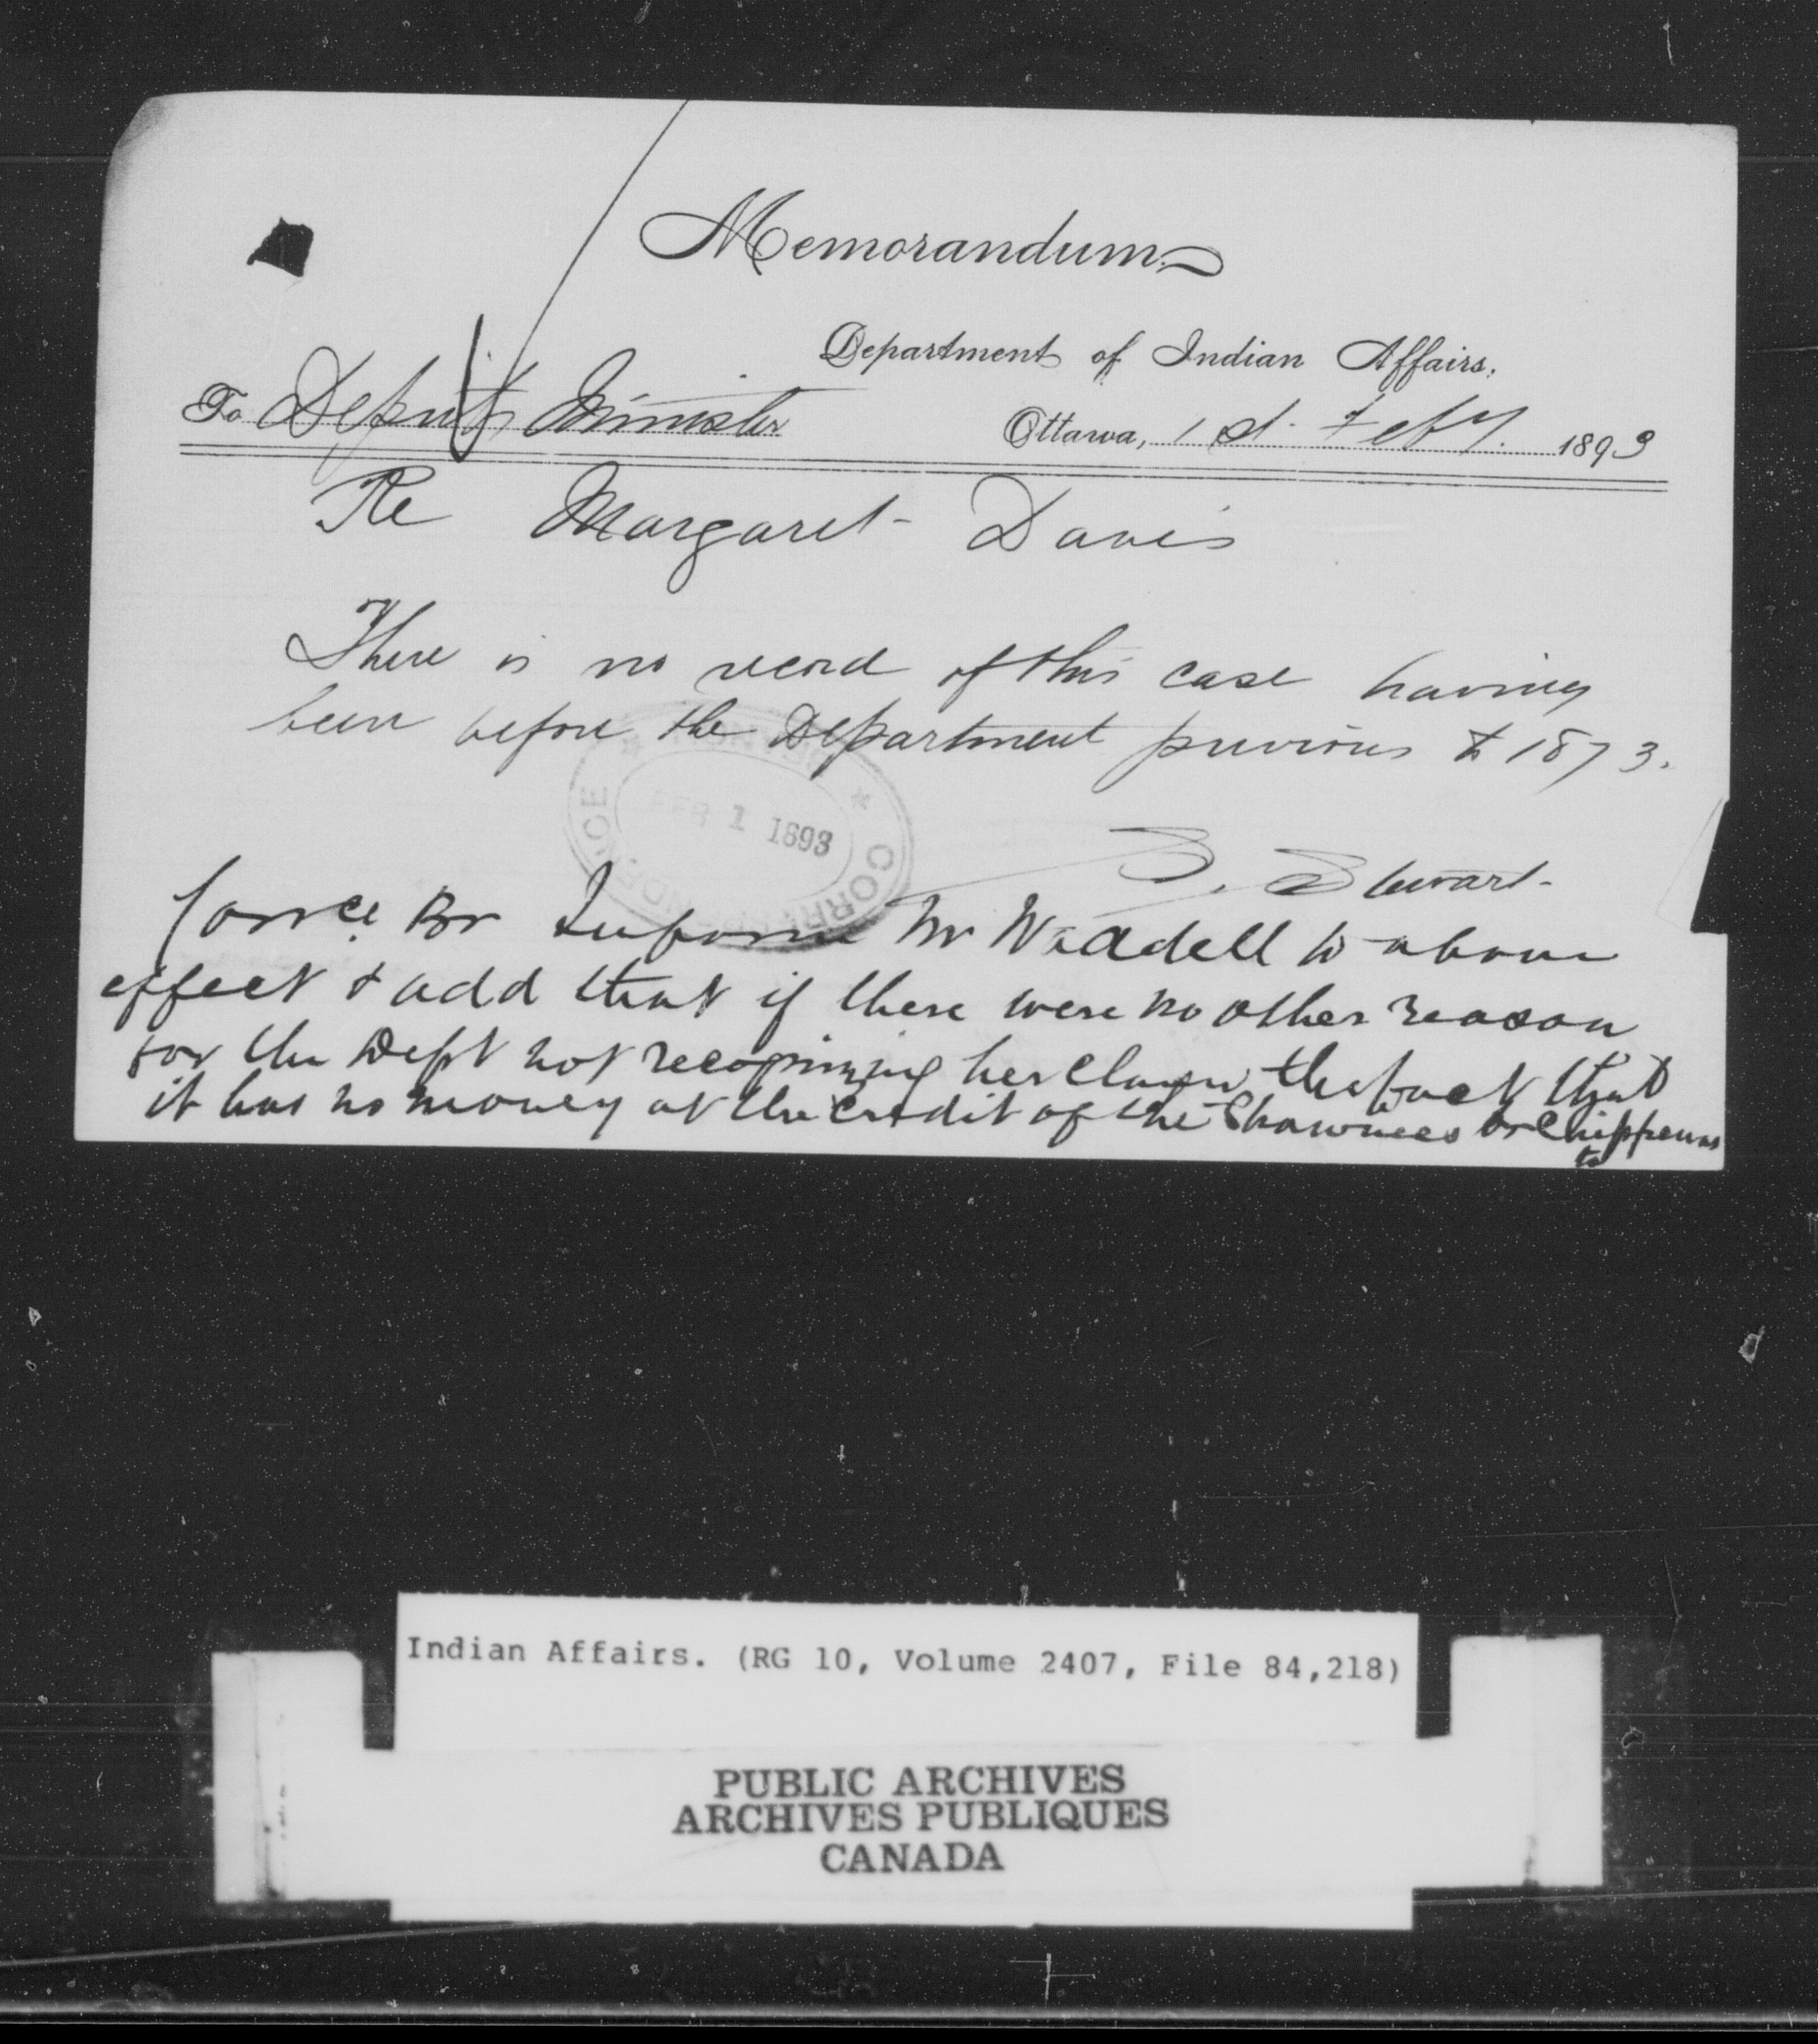 Memorandum.
Department of Indian Affairs,
To Deputy Minister
Ottawa, 1st Feby. 1893
Re Margaret Davis
There is no record of this case having
been before the Department previous to 1873.
FEB 1 1893
CORRESPONDENCE
S. Stewart
Corrce. Br Inform Mr Waddell to above
effect & add that if there were no other reason
for the Dept not recognizing her claim, the fact that
it has no money at the credit of the Shawnees or Chippewas
to
Indian Affairs. (RG 10, Volume 2407, File 84,218)
PUBLIC ARCHIVES
ARCHIVES PUBLIQUES
CANADA